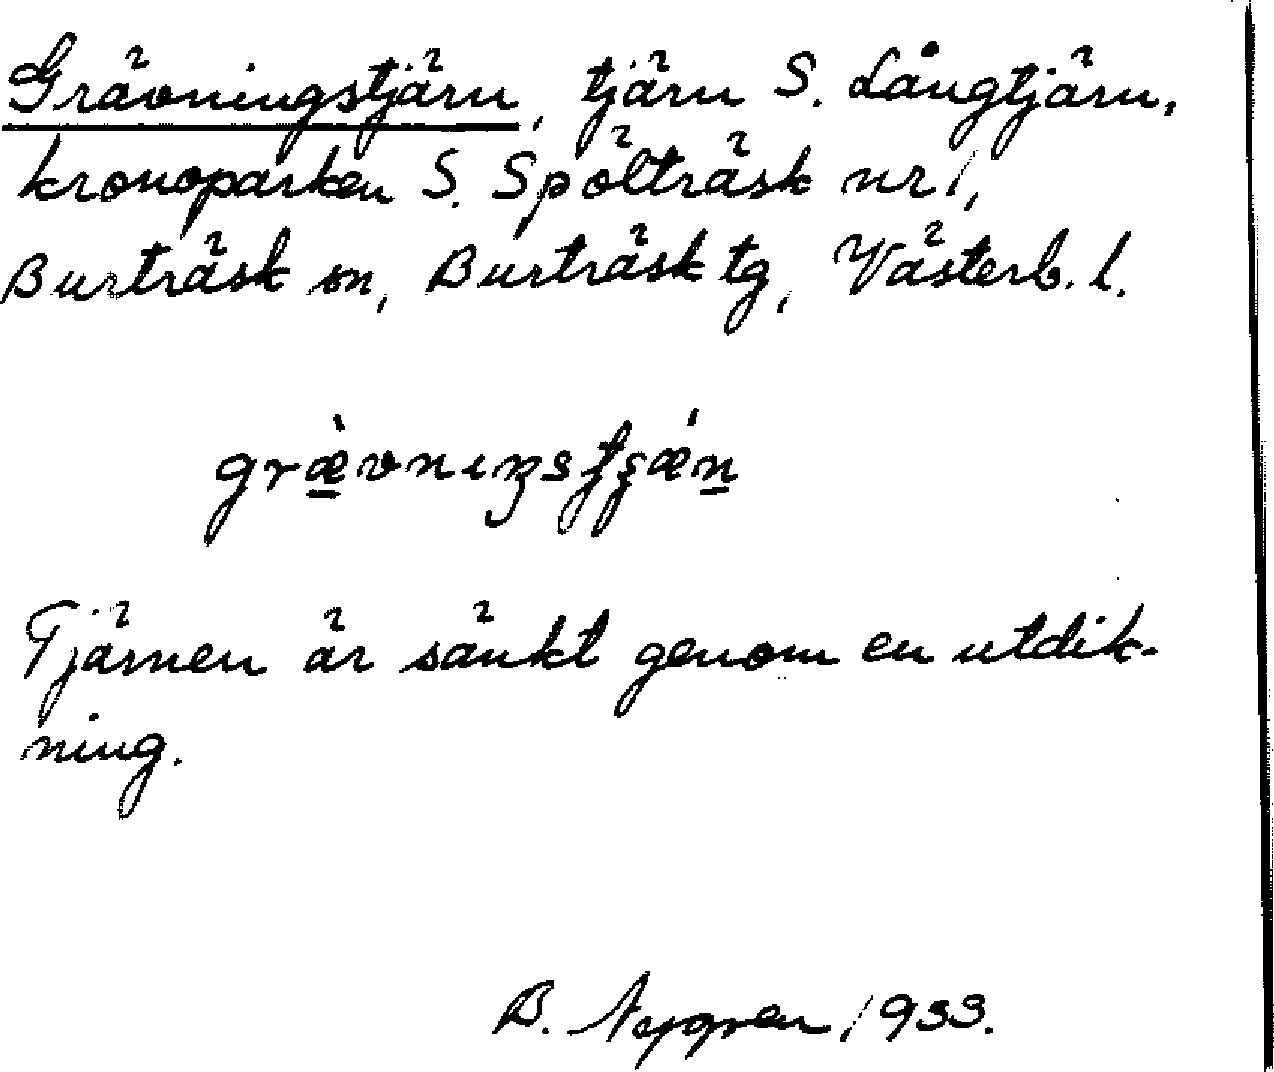 Grävningstjärn, tjärn S. Långtjärn,
kronoparken S. Spölträsk nr 1,
Burträsk sn, Burträsk tg, Västerb. l.
Tjärnen är sänkt genom en utdik-
ning.
B. Nygren 1933.